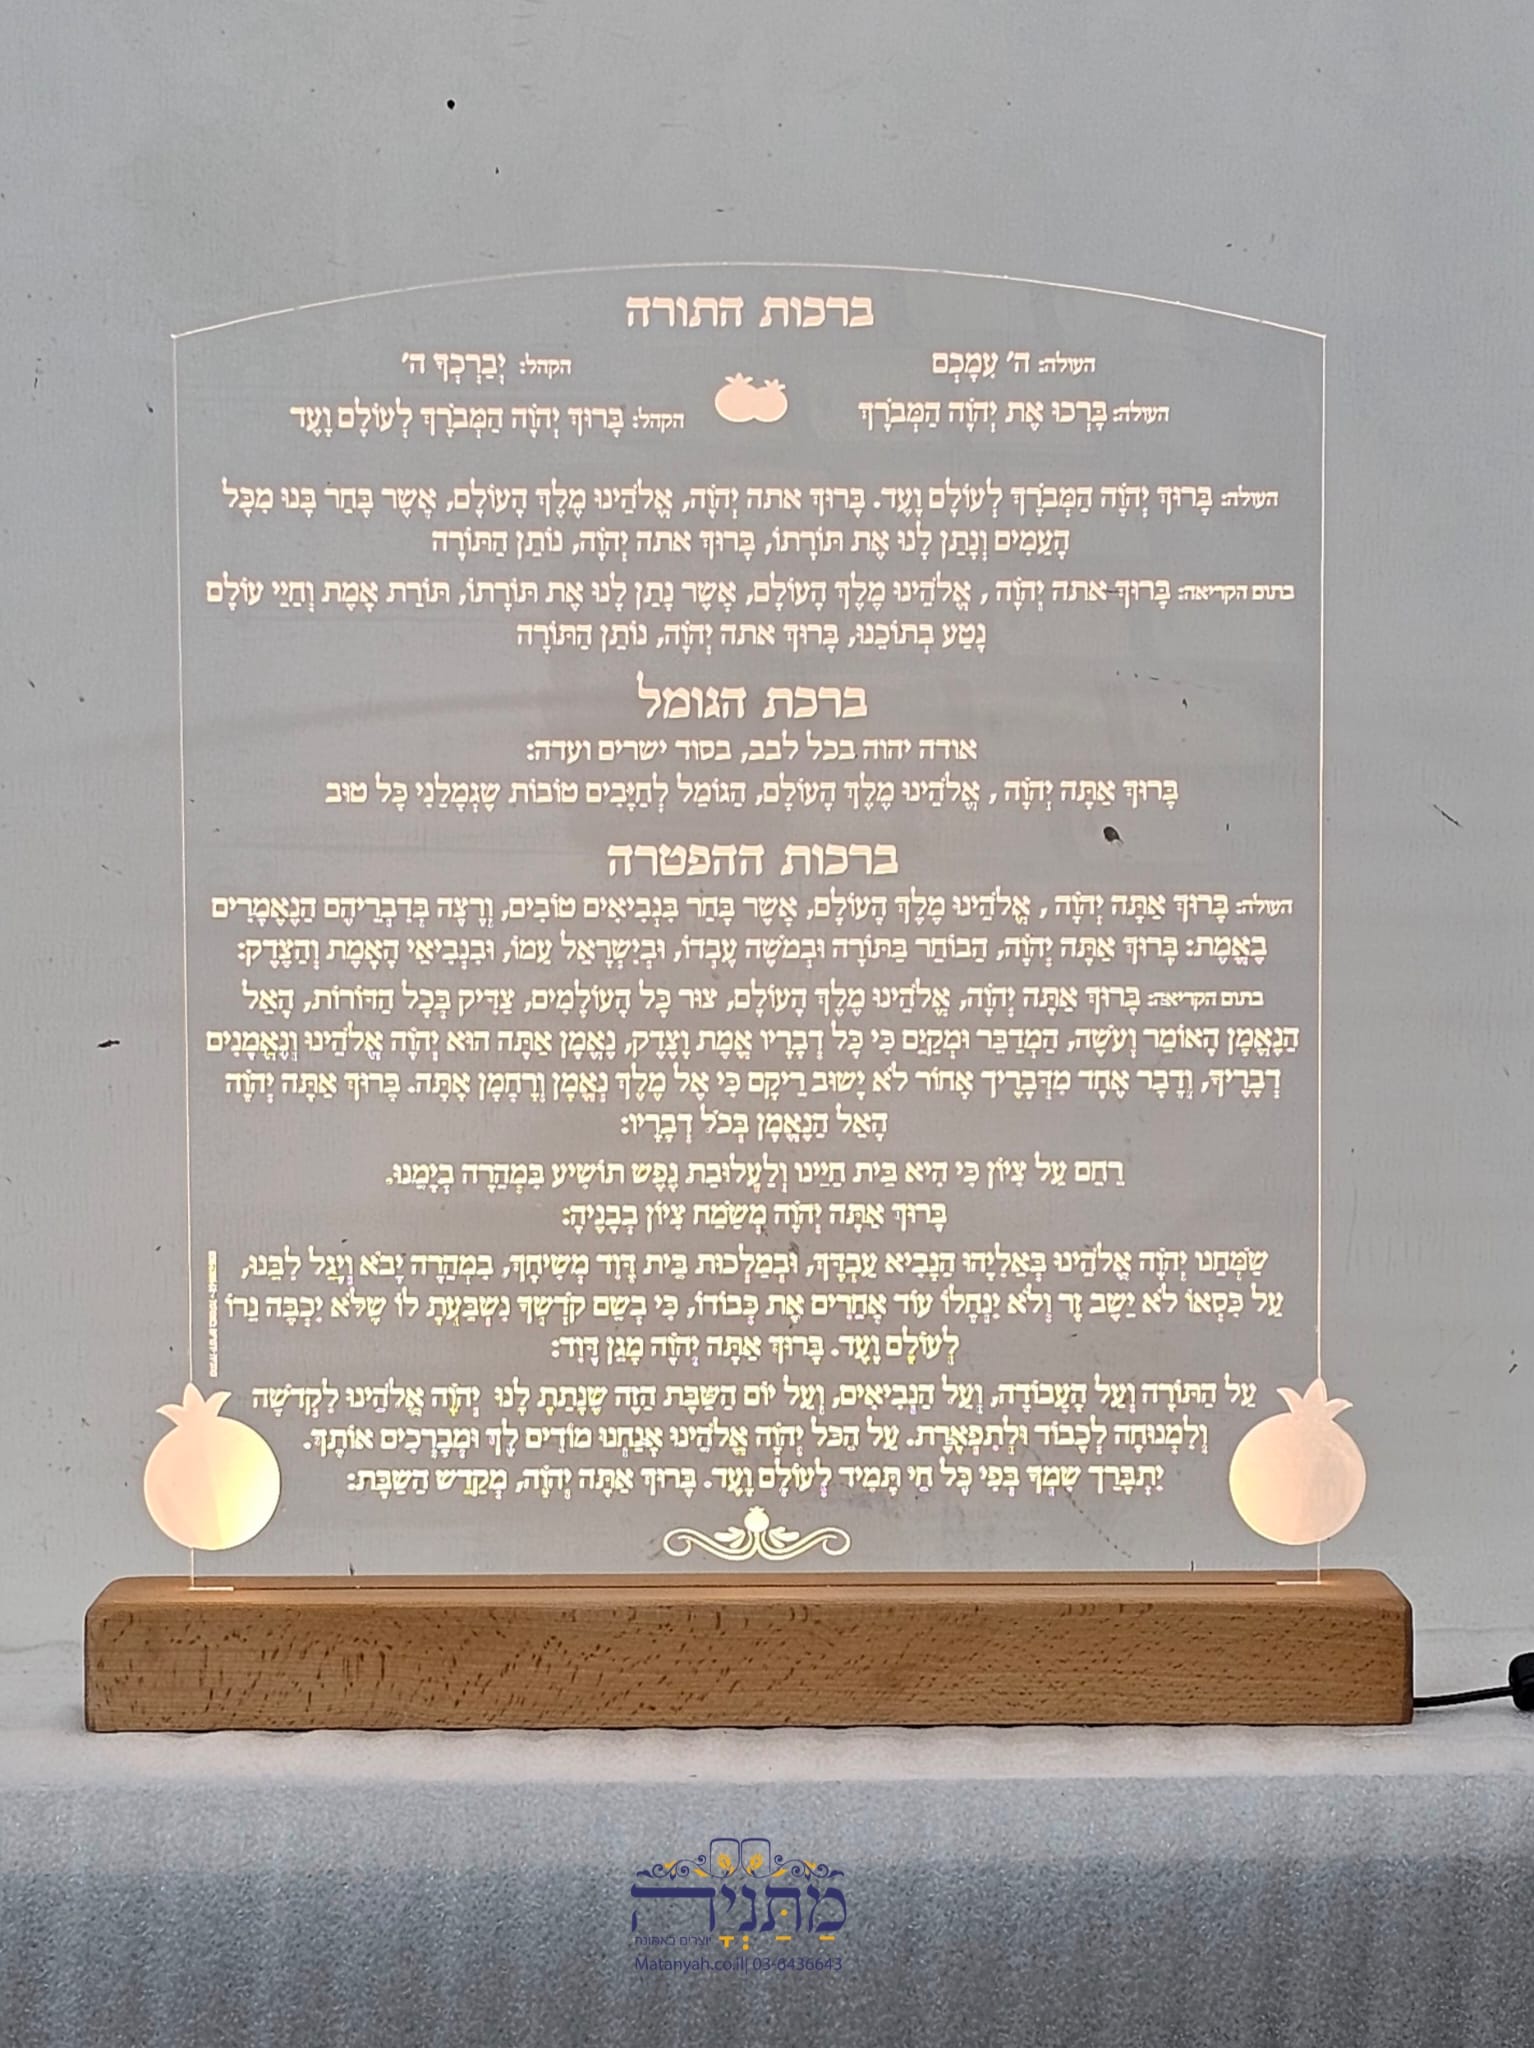 ברכות התורה
העולה: ה' עִמָכֶם
הקהל: יְבַרְכְךָ ה'
העולה: בָּרְכוּ אֶת יְהֹוָה הַמְּבֹרָךְ
הקהל: בָּרוּךְ יְהֹוָה הַמְּבֹרָךְ לְעוֹלָם וָעֶד
העולה: בָּרוּךְ יְהֹוָה הַמְּבֹרָךְ לְעוֹלָם וָעֶד. בָּרוּךְ אתה יְהֹוָה, אֱלֹהֵינוּ מֶלֶךְ הָעוֹלָם, אֲשֶׁר בָּחַר בָּנוּ מִכָּל
הָעַמִים וְנָתַן לָנוּ אֶת תּוֹרָתוֹ, בָּרוּךְ אתה יְהֹוָה, נוֹתֵן הַתּוֹרָה
בתום הקריאה: בָּרוּךְ אתה יְהֹוָה , אֱלֹהֵינוּ מֶלֶךְ הָעוֹלָם, אֲשֶׁר נָתַן לָנוּ אֶת תּוֹרָתוֹ, תּוֹרַת אֱמֶת וְחַיֵי עוֹלָם
נָטַע בְתוֹכֵנוּ, בָּרוּךְ אתה יְהֹוָה, נוֹתֵן הַתּוֹרָה
ברכת הגומל
אודה יהוה בכל לבב, בסוד ישרים ועדה:
בָּרוּךְ אַתָּה יְהֹוָה , אֱלֹהֵינוּ מֶלֶךְ הָעוֹלָם, הַגּוֹמֵל לְחַיָּבִים טוֹבוֹת שֶׁגְּמָלַנִי כָּל טוּב
ברכות ההפטרה
העולה: בָּרוּךְ אַתָּה יְהֹוָה , אֱלֹהֵינוּ מֶלֶךְ הָעוֹלָם, אֲשֶׁר בָּחַר בִּנְבִיאִים טוֹבִים, וְרָצָה בְּדִבְרֵיהֶם הַנֶּאֱמָרִים
בֶּאֱמֶת: בָּרוּךְ אַתָּה יְהֹוָה, הַבּוֹחֵר בַּתּוֹרָה וּבְמֹשֶׁה עַבְדּוֹ, וּבְיִשְׂרָאֵל עַמּוֹ, וּבִנְבִיאֵי הָאֱמֶת וְהַצֶּדֶק:
בתום הקריאה: בָּרוּךְ אַתָּה יְהֹוָה, אֱלֹהֵינוּ מֶלֶךְ הָעוֹלָם, צוּר כָּל הָעוֹלָמִים, צַדִּיק בְּכָל הַדּוֹרוֹת, הָאֵל
הַנֶּאֱמָן הָאוֹמֵר וְעֹשֶׂה, הַמְדַבֵּר וּמְקַיֵּם כִּי כָּל דְּבָרָיו אֱמֶת וָצֶדֶק, נֶאֱמָן אַתָּה הוּא יְהֹוָה אֱלֹהֵינוּ וְנֶאֱמָנִים
דְּבָרֶיךָ, וְדָבָר אֶחָד מִדְּבָרֶיךָ אָחוֹר לֹא יָשׁוּב רֵיקָם כִּי אֵל מֶלֶךְ נֶאֱמָן וְרַחֲמָן אָתָּה. בָּרוּךְ אַתָּה יְהֹוָה
הָאֵל הַנֶּאֱמָן בְּכֹל דְּבָרָיו:
רַחֵם עַל צִיּוֹן כִּי הִיא בֵּית חַיֵּינוּ וְלַעֲלוּבַת נֶפֶשׁ תּוֹשִׁיעַ בִּמְהֵרָה בְיָמֵנוּ.
בָּרוּךְ אַתָּה יְהֹוָה מְשַׂמֵּחַ צִיּוֹן בְּבָנֶיהָ:
שַׂמְּחֵנוּ יְהֹוָה אֱלֹהֵינוּ בְּאֵלִיָּהוּ הַנָּבִיא עַבְדָּךְ, וּבְמַלְכוּת בֵּית דָּוִד מְשִׁיחָךְ, בִּמְהֵרָה יָבֹא וְיָגֵל לִבֵּנוּ,
עַל כִּסְאוֹ לֹא יֵשֵׁב זָר וְלֹא יִנְחֲלוּ עוֹד אֲחֵרִים אֶת כְּבוֹדוֹ, כִּי בְשֵׁם קָדְשְׁךָ נִשְׁבַּעְתָּ לּוֹ שֶׁלֹּא יִכְבֶּה נֵרוֹ
לְעוֹלָם וָעֶד. בָּרוּךְ אַתָּה יְהֹוָה מָגֵן דָּוִד:
עַל הַתּוֹרָה וְעַל הָעֲבוֹדָה, וְעַל הַנְּבִיאִים, וְעַל יוֹם הַשַּׁבָּת הַזֶּה שֶׁנָּתַתָּ לָנוּ יְהֹוָה אֱלֹהֵינוּ לִקְדֻשָּׁה
וְלִמְנוּחָה לְכָבוֹד וּלְתִפְאָרֶת. עַל הַכֹּל יְהֹוָה אֱלֹהֵינוּ אֲנַחְנוּ מוֹדִים לָךְ וּמְבָרְכִים אוֹתָךְ.
יִתְבָּרַךְ שִׁמְךָ בְּפִי כָּל חַי תָּמִיד לְעוֹלָם וָעֶד. בָּרוּךְ אַתָּה יְהֹוָה, מְקַדֵּשׁ הַשַּׁבָּת:
מַתַּנְיָה
יוצרים באמונה
Matanyah.co.il| 03-6436643